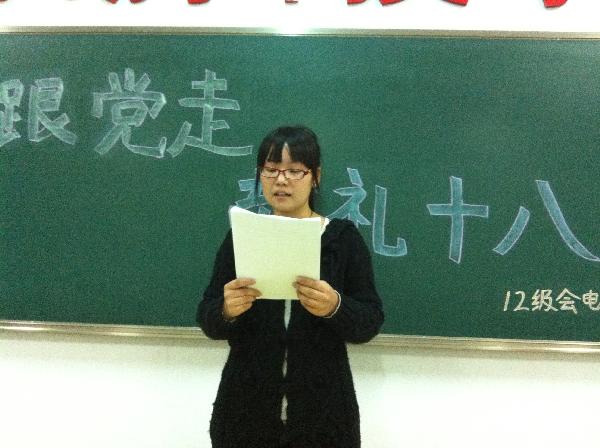 跟党走
礼十八
12级会电